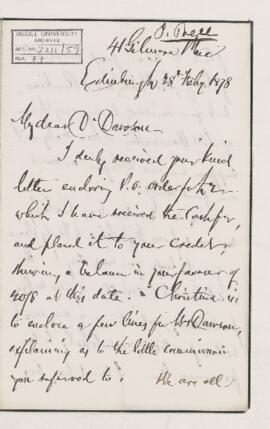 McGILL UNIVERSITY
ARCHIVES
ACC. NO. 2211/59
REF.
P. Bell
41 Gilmore Place
Edinburgh 28th Feby. 1878
My dear Dr Dawson
I duly received your kind
letter enclosing P.O. order for
which I have received the Cash for,
and placed it to your credit,
showing a balance in your favour of
20/8 at this date. Christina is
to enclose a few lines for Mrs Dawson,
explaining as to the little commission
you referred to. We are all